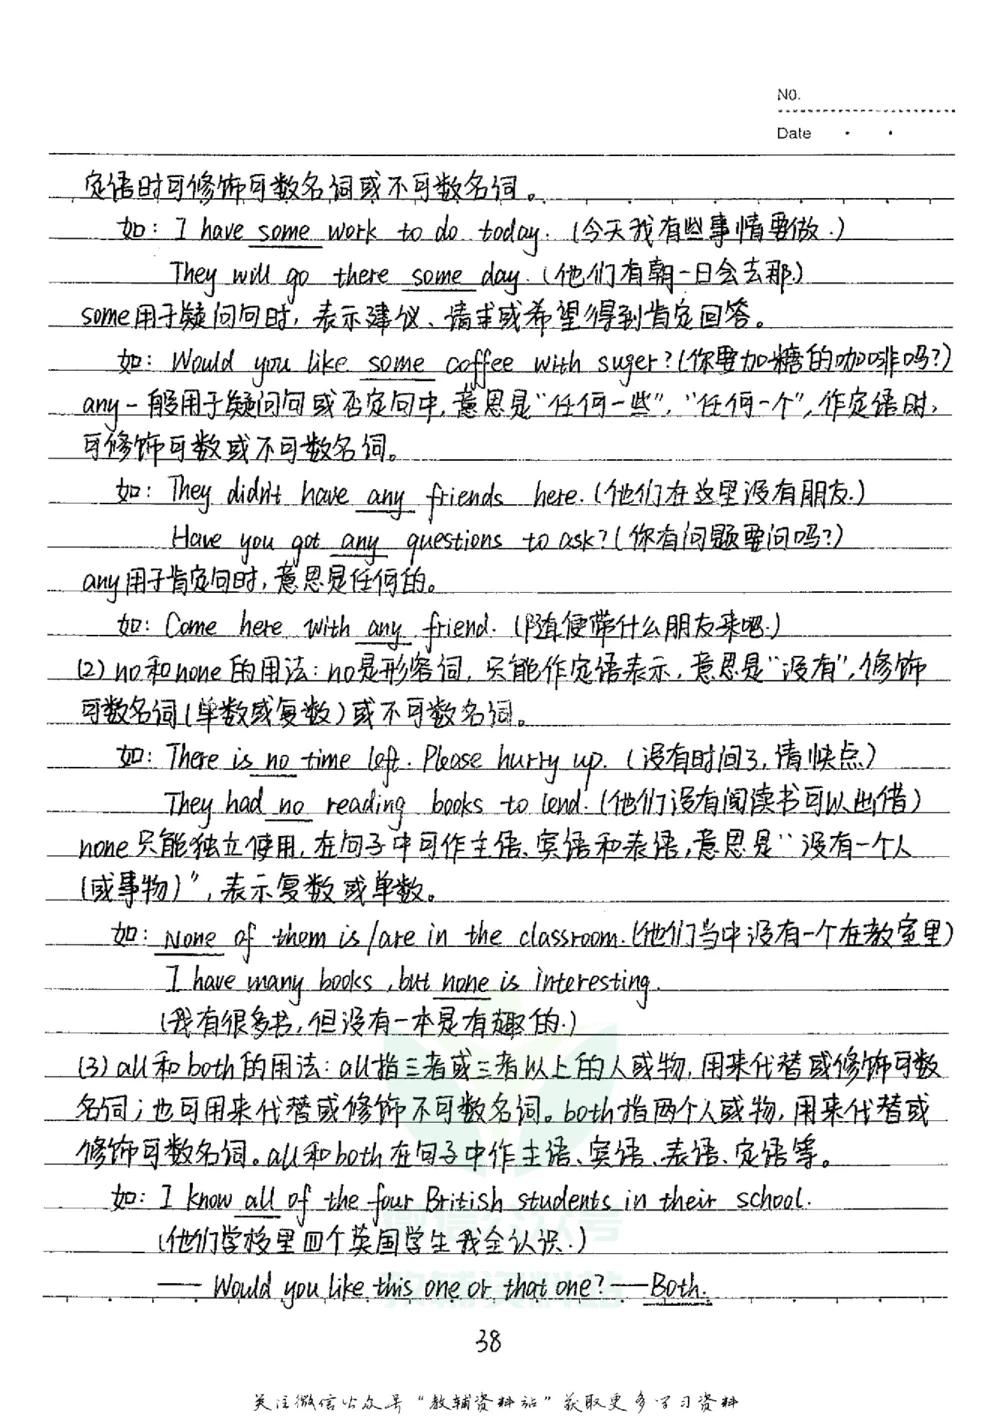 NO.
Date
定语时可修饰可数名词或不可数名词。
如: I have some work to do today. (今天我有些事情要做.)
They will go there some day. (他们有朝一日会去那)
some用于疑问句时, 表示建议、请求或希望得到肯定回答。
如: Would you like some coffee with suger? (你要加糖的咖啡吗?)
any一般用于疑问句或否定句中, 意思是“任何一些”, “任何一个”, 作定语时,
可修饰可数或不可数名词。
如: They didn't have any friends here. (他们在这里没有朋友.)
Have you got any questions to ask? (你有问题要问吗?)
any用于肯定句时, 意思是任何的。
如: Come here with any friend. (随便带什么朋友来吧.)
(2) no和none的用法: no是形容词, 只能作定语表示, 意思是“没有”, 修饰
可数名词(单数或复数)或不可数名词。
如: There is no time left. Please hurry up. (没有时间了, 请快点)
They had no reading books to lend. (他们没有阅读书可以出借)
none只能独立使用, 在句子中可作主语、宾语和表语, 意思是“没有一个人
(或事物)”, 表示复数或单数。
如: None of them is/are in the classroom. (他们当中没有一个在教室里)
I have many books, but none is interesting.
(我有很多书, 但没有一本是有趣的.)
(3) all和both的用法: all指三者或三者以上的人或物, 用来代替或修饰可数
名词; 也可用来代替或修饰不可数名词。both指两个人或物, 用来代替或
修饰可数名词。all和both在句子中作主语、宾语、表语、定语等。
如: I know all of the four British students in their school.
(他们学校里四个英国学生我全认识.)
—— Would you like this one or that one? —— Both.
微信公众号
教辅资料站
38
关注微信公众号“教辅资料站”获取更多学习资料